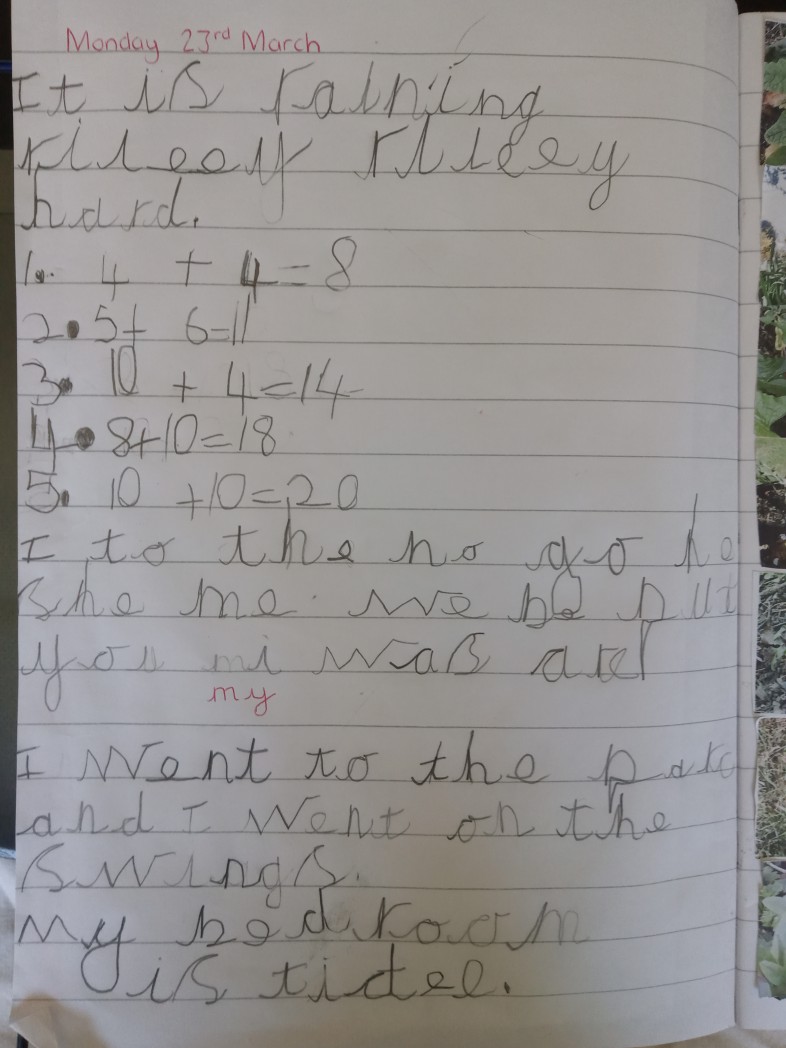 Monday 23rd March
It is raining
rileey rlleey
hard.
1. 4 + 4=8
2. 5+ 6=11
3. 10 + 4=14
4. 8+10=18
5. 10 +10=20
I to the no go he
she me we be put
you mi was are
my
I went to the parc
and I went on the
swings.
My bedroom
is tidee.